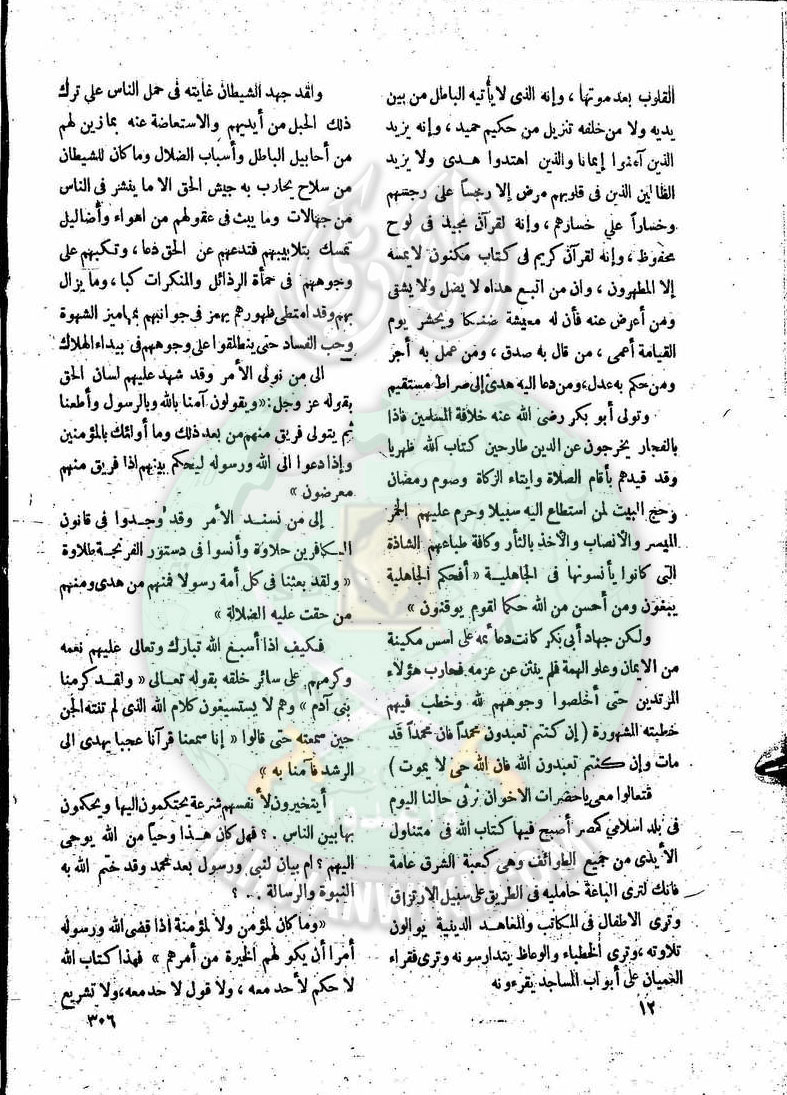 القلوب بعد موتها ، وإنه الذى لا يأتيه الباطل من بين
يديه ولا من خلفه تنزيل من حكيم حميد ، وإنه يزيد
الذين آمنوا إيمانا والذين اهتدوا هدى ولا يزيد
الظالمين الذين فى قلوبهم مرض إلا رجساً على رجسهم
وخساراً على خسارهم ، وإنه لقرآن مجيد فى لوح
محفوظ ، وإنه لقرآن كريم فى كتاب مكنون لا يمسه
إلا المطهرون ، وان من اتبع هداه لا يضل ولا يشقى
ومن أعرض عنه فأن له معيشة ضنكا ويحشر يوم
القيامة أعمى ، من قال به صدق ، ومن عمل به أجر
ومن حكم به عدل ، ومن دعا اليه هدى إلى صراط مستقيم
وتولى أبو بكر رضى الله عنه خلافة المسلمين فاذا
بالفجار يخرجون عن الدين طارحين كتاب الله ظهريا
وقد قيدهم بأقام الصلاة وايتاء الزكاة وصوم رمضان
وحج البيت لمن استطاع اليه سبيلا وحرم عليهم الخمر
الميسر والأنصاب والأخذ بالثأر وكافة طباعهم الشاذة
التى كانوا يأنسونها فى الجاهلية « أفحكم الجاهلية
يبغون ومن أحسن من الله حكما لقوم يوقنون »
ولكن جهاد أبى بكر كانت دعائمه على اسس مكينة
من الايمان وعلو الهمة فلم ينثن عن عزمه فحارب هؤلاء
المرتدين حتى أخلصوا وجوههم لله وخطب فيهم
خطبته المشهورة ( إن كنتم تعبدون محمداً فان محمداً قد
مات وإن كنتم تعبدون الله فان الله حى لا يموت )
فتعالوا معى يا حضرات الاخوان نرى حالنا اليوم
فى بلد اسلامي كمصر أصبح فيها كتاب الله فى متناول
الأيدى من جميع الطوائف وهى كعبة الشرق عامة
فانك لترى الباعة حامليه فى الطريق على سبيل الارتزاق
وترى الاطفال فى المكاتب والمعاهد الدينية يوالون
تلاوته ، وترى الخطباء والوعاظ يتدارسونه وترى فقراء
العميان على أبواب المساجد يقرءونه
١٢
واقد جهد الشيطان غايته فى حمل الناس علي ترك
ذلك الحبل من أيديهم والاستعاضة عنه بما زين لهم
من أحابيل الباطل وأسباب الضلال وما كان للشيطان
من سلاح يحارب به جيش الحق الا ما يفشر فى الناس
من جهالات وما يبث فى عقولهم من اهواء وأضاليل
تمسك بتلابيبهم فتدعهم عن الحق دعا ، وتكبهم على
وجوههم فى حمأة الرذائل والمنكرات كبا ، وما يزال
بهم وقد امتطى ظهورهم يهمز فى جوانبهم بمهاميز الشهوة
وحب الفساد حتى ينطلقوا على وجوههم فى بيداء الهلاك
الى من نولى الأمر وقد شهد عليهم لسان الحق
بقوله عز وجل : « ويقولون آمنا بالله وبالرسول وأطعنا
ثم يتولى فريق منهم من بعد ذلك وما أولئك بالمؤمنين
وإذا دعوا الى الله ورسوله ليحكم بينهم اذا فريق منهم
معرضون »
إلى من نسند الأمر وقد وجدوا فى قانون
الكافرين حلاوة وأنسوا فى دستور الفرنجة طلاوة
« ولقد بعثنا فى كل أمة رسولا فمنهم من هدى ومنهم
من حقت عليه الضلالة »
فكيف اذا أسبغ الله تبارك وتعالى عليهم نعمه
وكرمهم على سائر خلقه بقوله تعالى « ولقد كرمنا
بنى آدم » وهم لا يستسيغون كلام الله الذى لم تنته الجن
حين سمعته حتى قالوا « إنا سمعنا قرآنا عجبا يهدى الى
الرشد فآمنا به »
أيتخيرون لأنفسهم شرعة يحتكمون اليها ويحكمون
بها بين الناس . ؟ فهل كان هذا وحياً من الله يوحى
اليهم ؟ ام بيان لنبى ورسول بعد محمد وقد ختم الله به
النبوة والرسالة . . ؟
« وما كان لمؤمن ولا لمؤمنة اذا قضى الله ورسوله
أمرا أن يكو لهم الخيرة من أمرهم » فهذا كتاب الله
لا حكم لأحد معه ، ولا قول لاحد معه ، ولا تشريع
٣٠٦